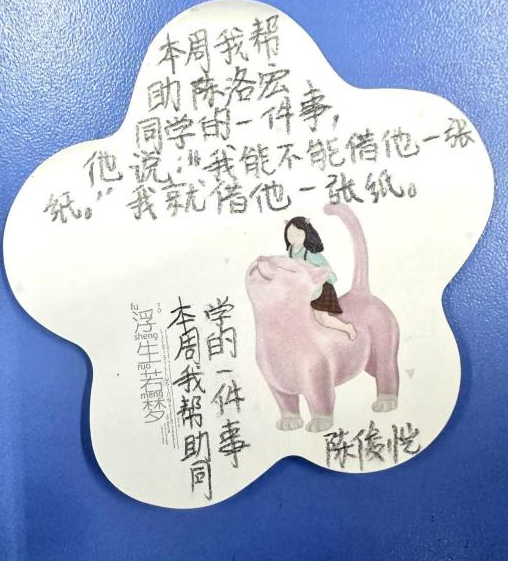 本周我帮
助陈洛宏
同学的一件事，
他说：“我能不能借他一张
纸。”我就借他一张纸。
TO
fu
浮
sheng
生
ruo
若
meng
梦
本周我帮助同
学的一件事
陈俊恺